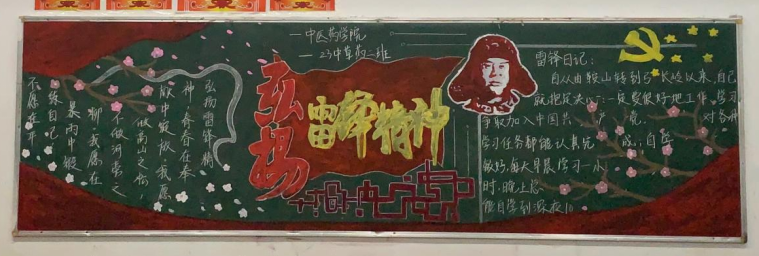 中医药学院
23中草药二班
弘扬
雷锋精神
弘扬雷锋精
神，青春在奉
献中绽放，我愿
做高山之松，
不做河旁之
柳，我愿在
暴雨中
练自己
不愿在平
雷锋日记：
自从由鞍山转到弓长岭以来，自己
就把决心：一定要很好地工作、学习
争取加入中国共产党。对各种
学习任务都能认真完成；自
每天早晨学习一小
时，晚上总
能自学到深夜